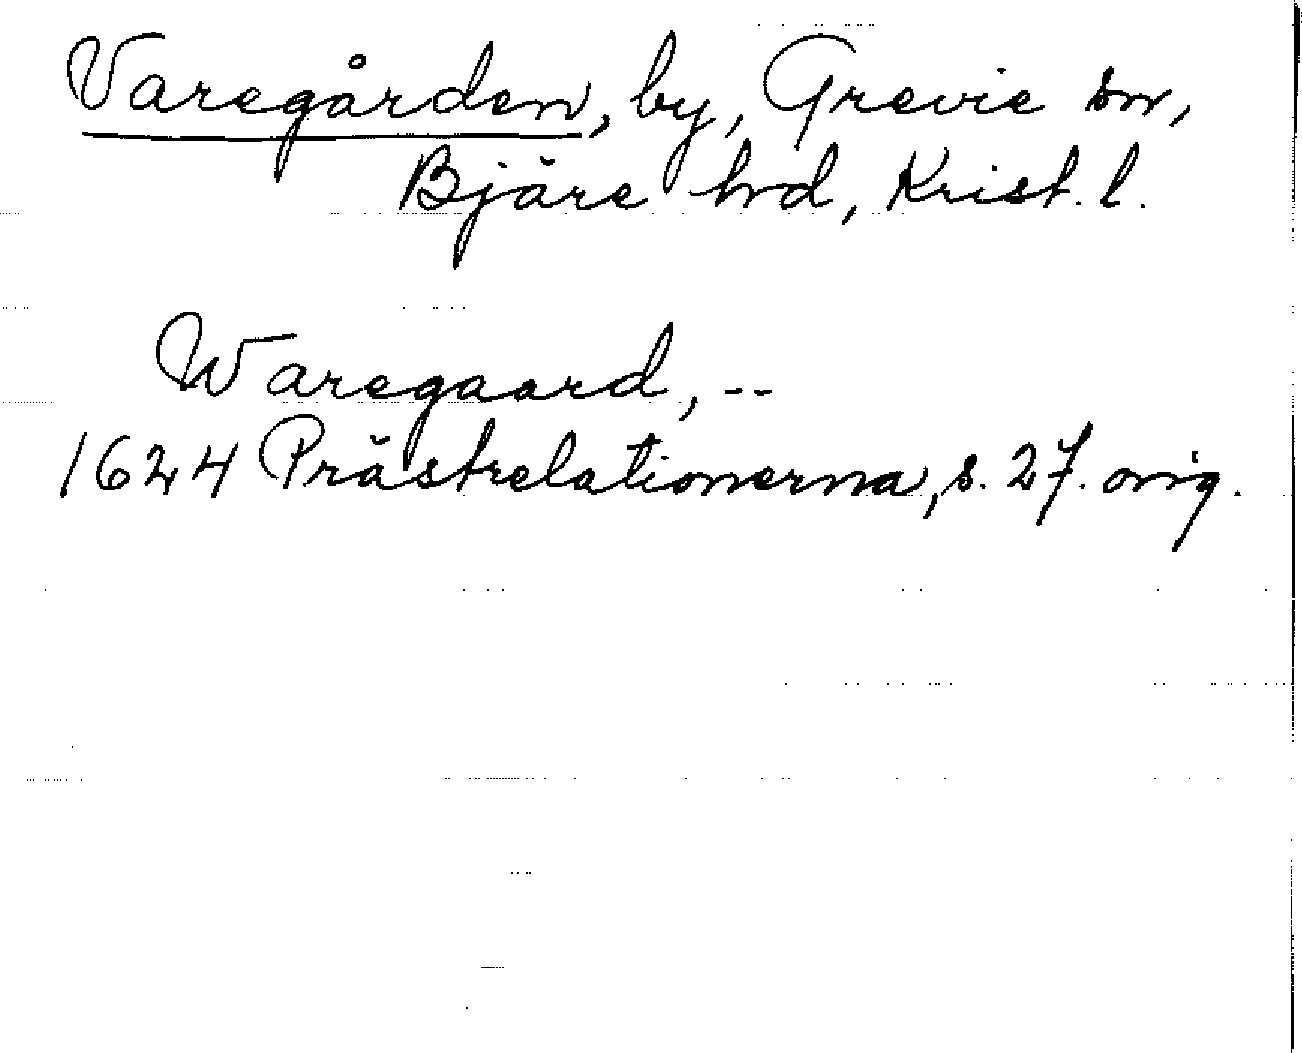 Varegården, by, Grevie sn,
Bjäre hrd, Krist. l.
Waregaard, --
1624 Prästrelationerna, s. 27. orig.